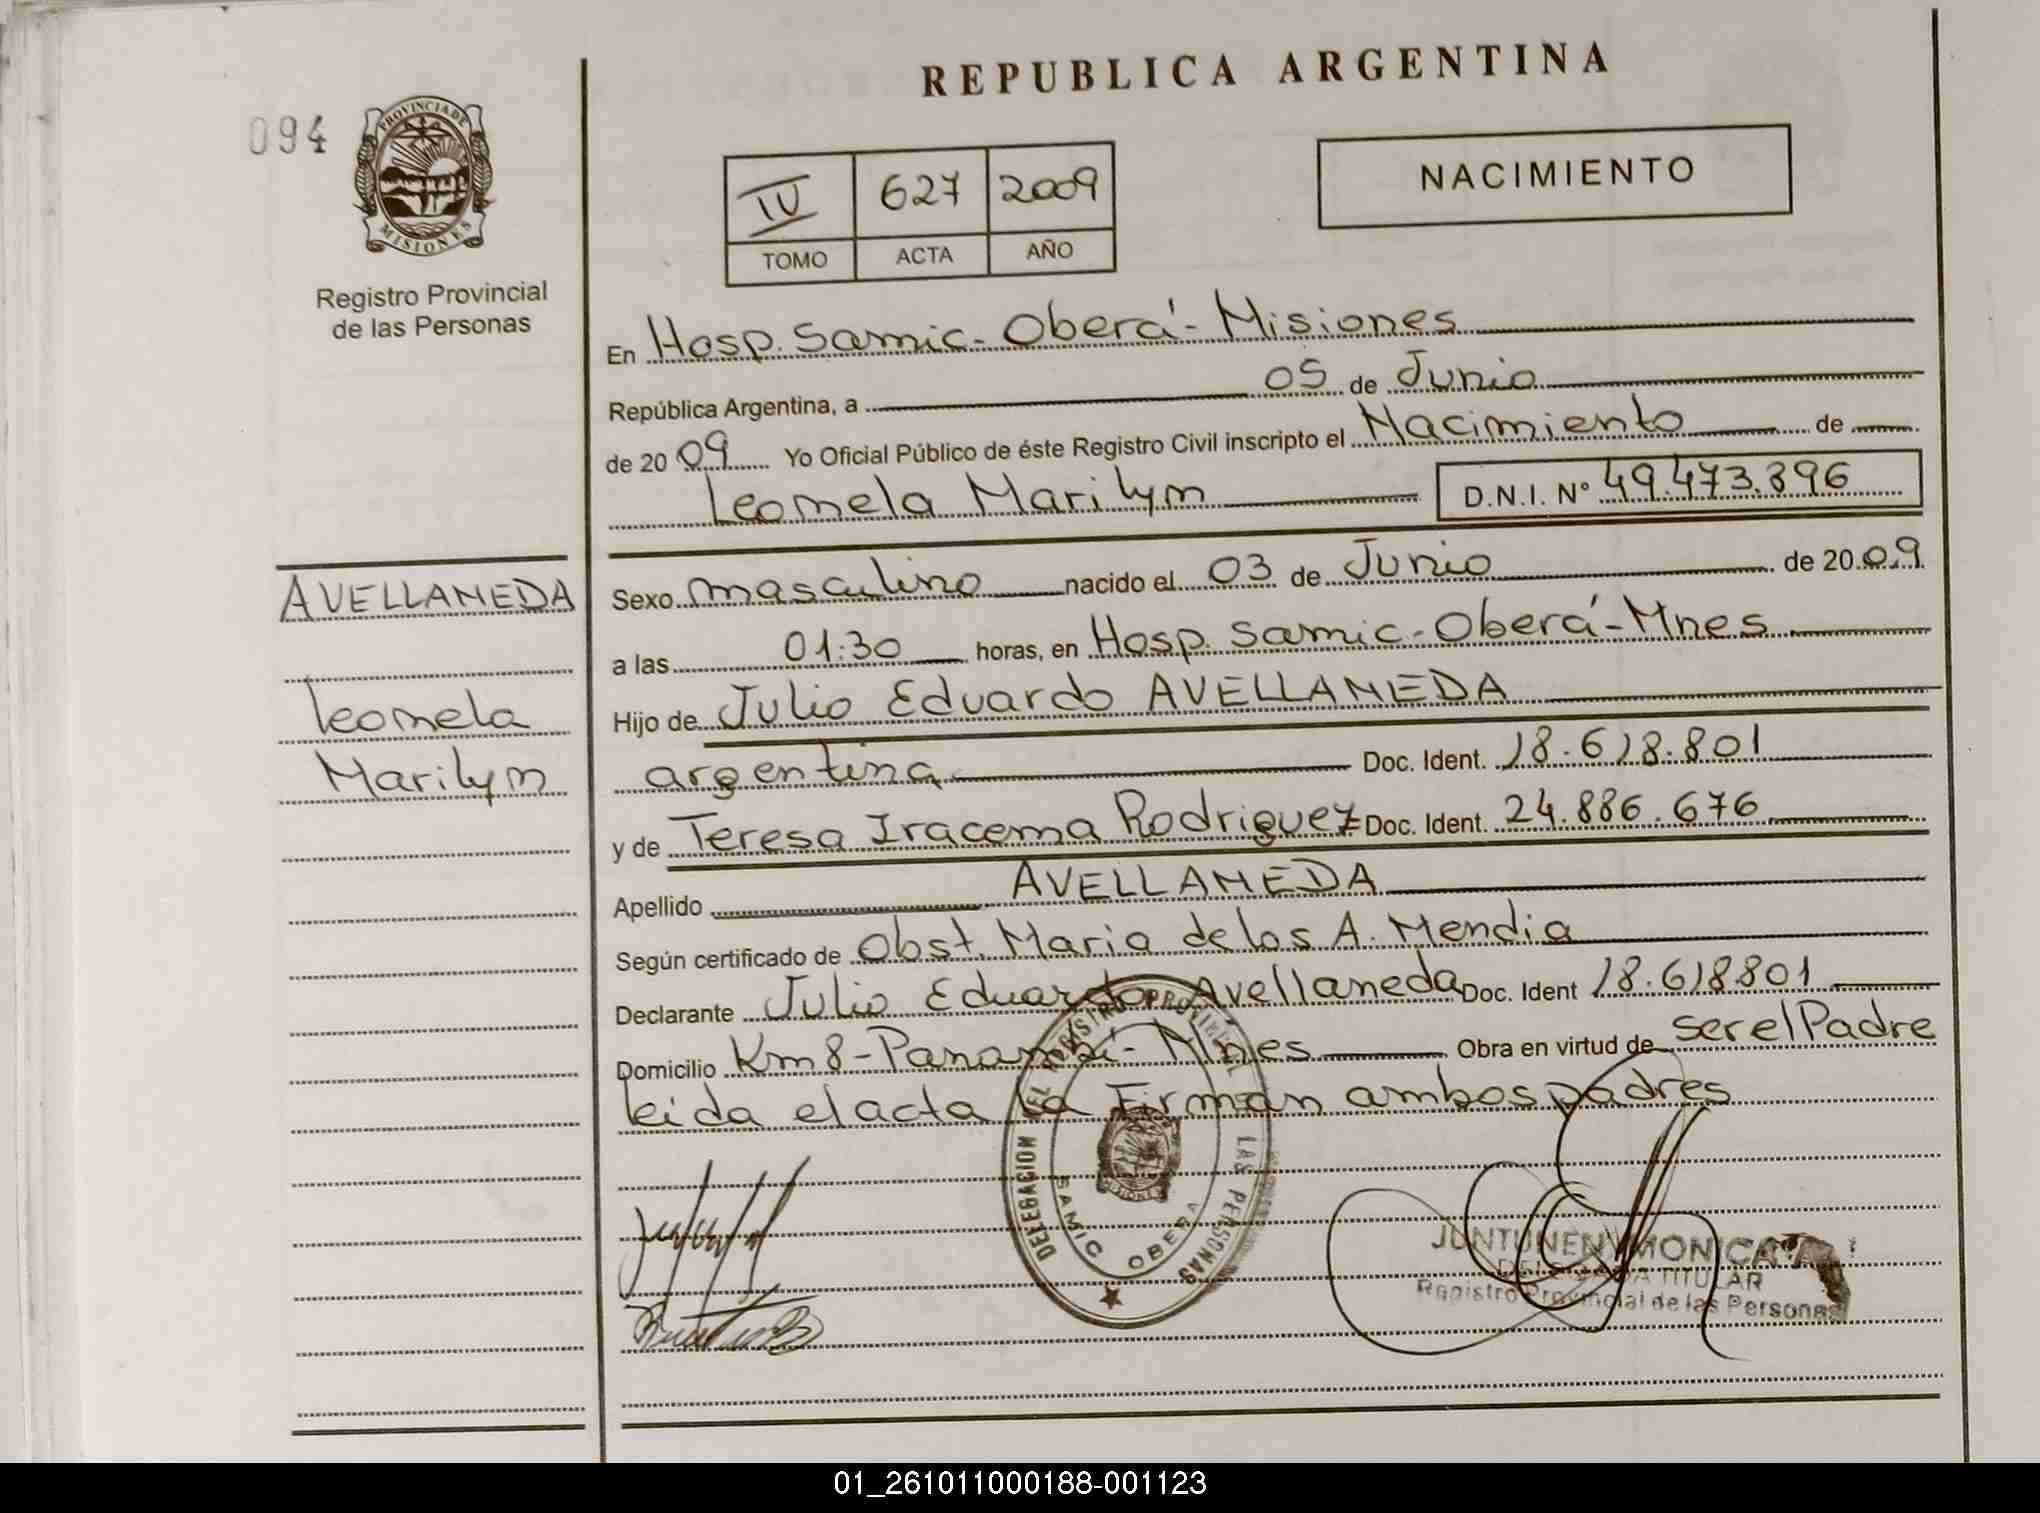 REPUBLICA ARGENTINA
094
PROVINCIA DE
MISIONES
Registro Provincial
de las Personas
IV 627 2009
TOMO ACTA AÑO
NACIMIENTO
En Hosp. Samic - Oberá - Misiones
República Argentina, a 05 de Junio
de 2009 Yo Oficial Público de éste Registro Civil inscripto el Nacimiento de
Leonela Marilyn D.N.I. Nº 49.473.896
AVELLANEDA
Leonela
Marilyn
Sexo masculino nacido el 03 de Junio de 2009
a las 01:30 horas, en Hosp. Samic - Oberá - Mnes
Hijo de Julio Eduardo AVELLANEDA
argentina Doc. Ident. 18.618.801
y de Teresa Iracema Rodriguez Doc. Ident. 24.886.676
Apellido AVELLANEDA
Según certificado de Obst. Maria de los A. Mendia
Declarante Julio Eduardo Avellaneda Doc. Ident 18.618801
Domicilio Km 8 - Panambí - Mnes Obra en virtud de ser el Padre
leida el acta la Firman ambos padres
DELEGACION DEL REGISTRO PROVINCIAL DE LAS PERSONAS
SAMIC OBERA
JUNTUNEN MONICA
DELEGADA TITULAR
Registro Provincial de las Personas
01_261011000188-001123